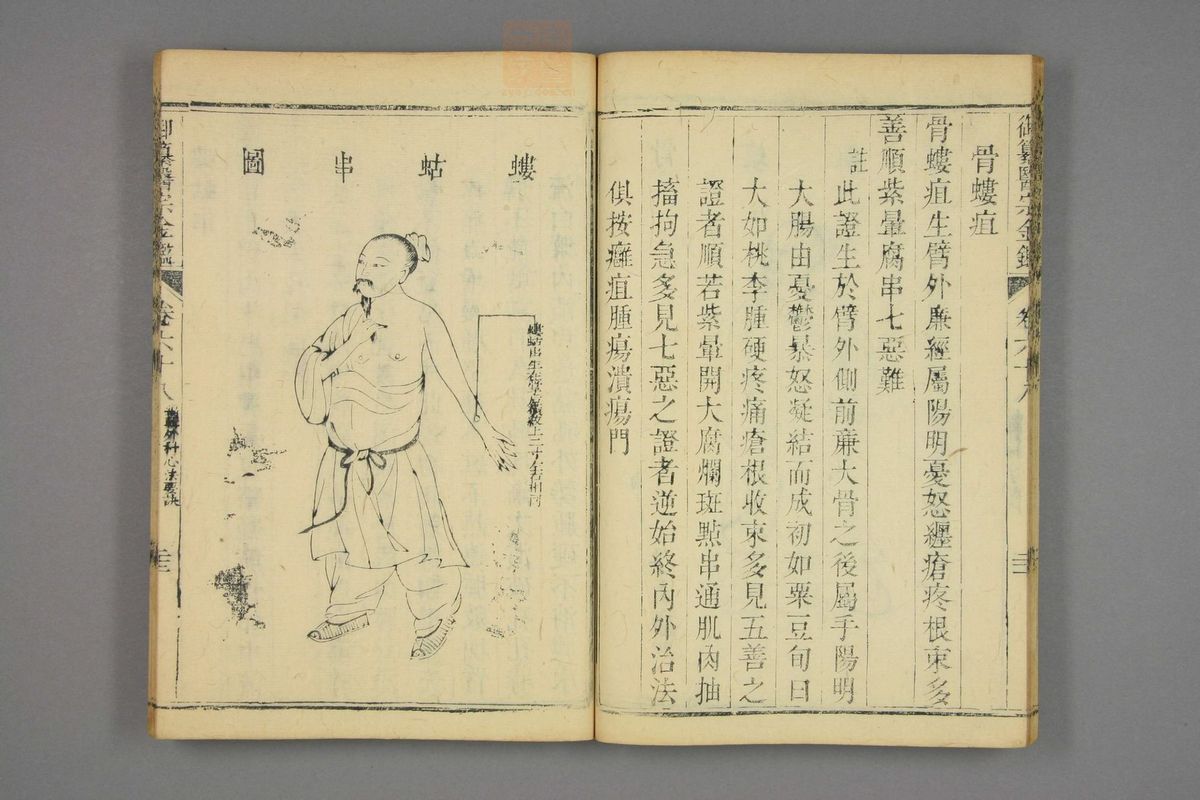 御纂醫宗金鑑
卷六十八
骨螻疽
骨螻疽生臂外廉經屬陽明憂怒纏瘡疼根束多
善順紫暈腐串七惡難
註
此證生於臂外側前廉大骨之後屬手陽明
大腸由憂鬱暴怒凝結而成初如粟豆旬日
大如桃李腫硬疼痛瘡根收束多見五善之
證者順若紫暈開大腐爛斑點串通肌肉抽
搐拘急多見七惡之證者逆始終內外治法
俱按癰疽腫瘍潰瘍門
螻蛄串圖
御纂醫宗金鑑
卷六十八
外科心法要訣